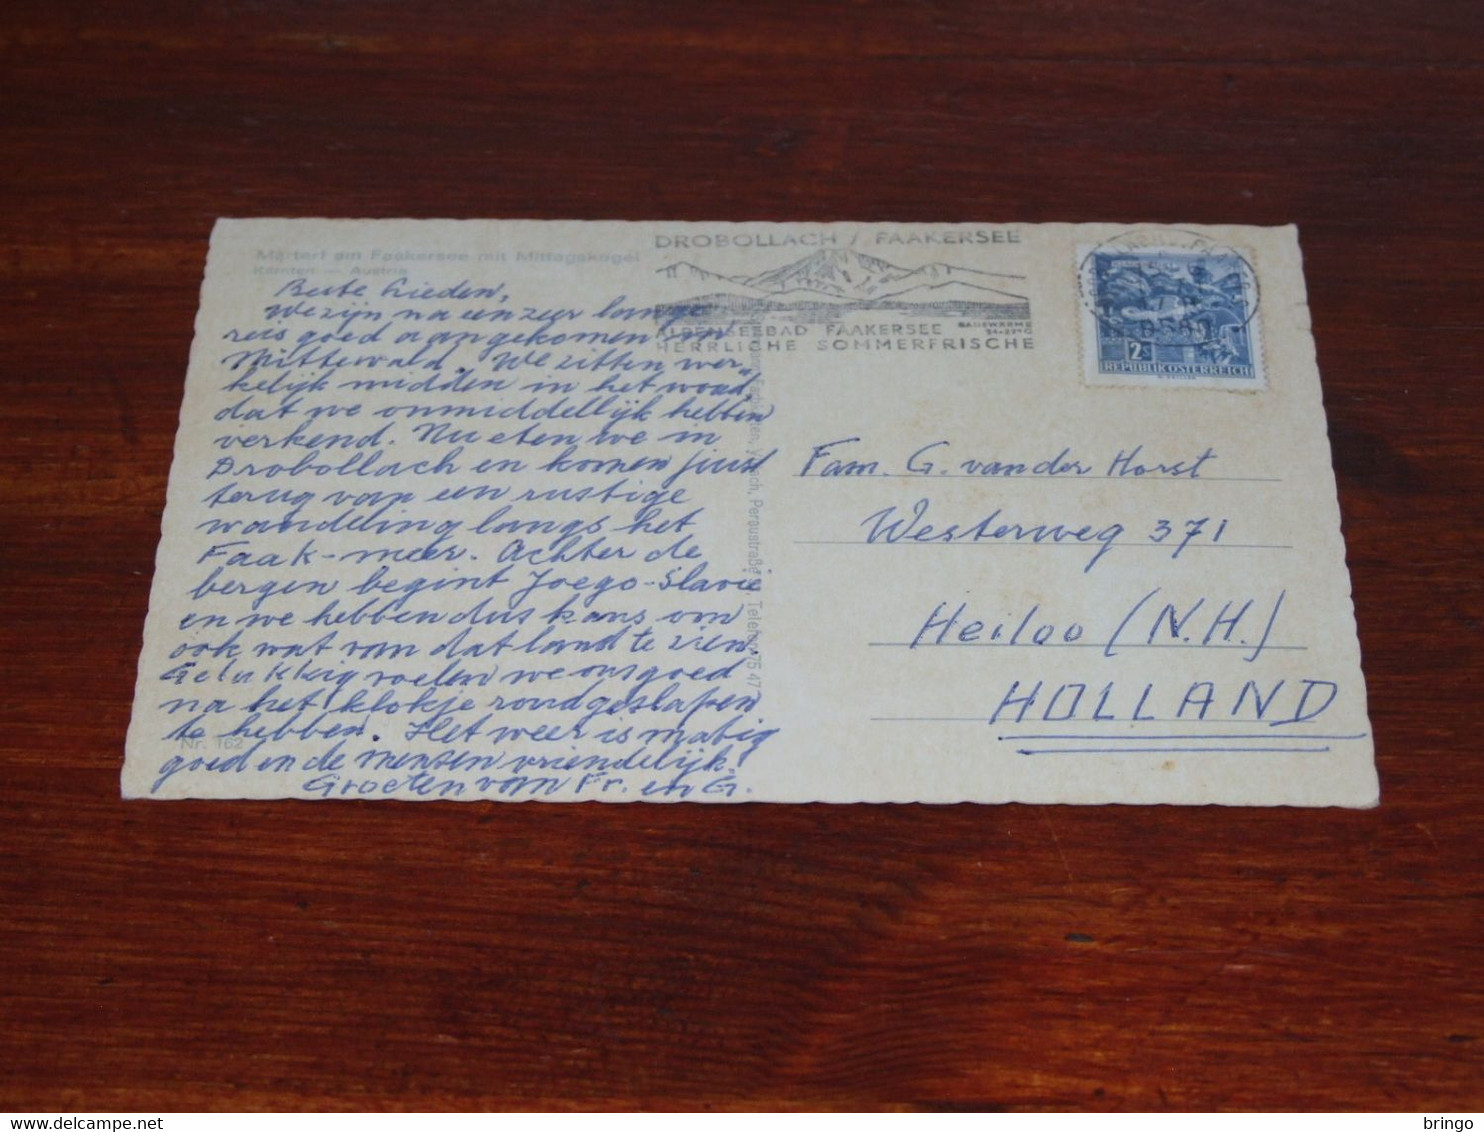 Märterl am Faakersee mit Mittagskogel
Kärnten — Austria
Beste lieden,
We zijn na een zeer lange
reis goed aangekomen in
Mittewald. We zitten wer-
kelijk midden in het woud,
dat we onmiddellijk hebben
verkend. Nu eten we in
Drobollach en komen juist
terug van een rustige
wandeling langs het
Faak-meer. Achter de
bergen begint Joego-Slavie
en we hebben dus kans om
ook wat van dat land te zien
Gelukkig voelen we ons goed
na het klokje rond geslapen
te hebben. Het weer is matig
goed en de mensen vriendelijk.
Groeten van Fr. en G.
Nr. 162
Villach, Peraustraße Telefon 75 47
DROBOLLACH / FAAKERSEE
ALPENSEEBAD FAAKERSEE
BADEWÄRME
24-27°C
HERRLICHE SOMMERFRISCHE
9580
2
REPUBLIK ÖSTERREICH
Fam. G. van der Horst
Westerweg 371
Heiloo (N.H.)
HOLLAND
bringo